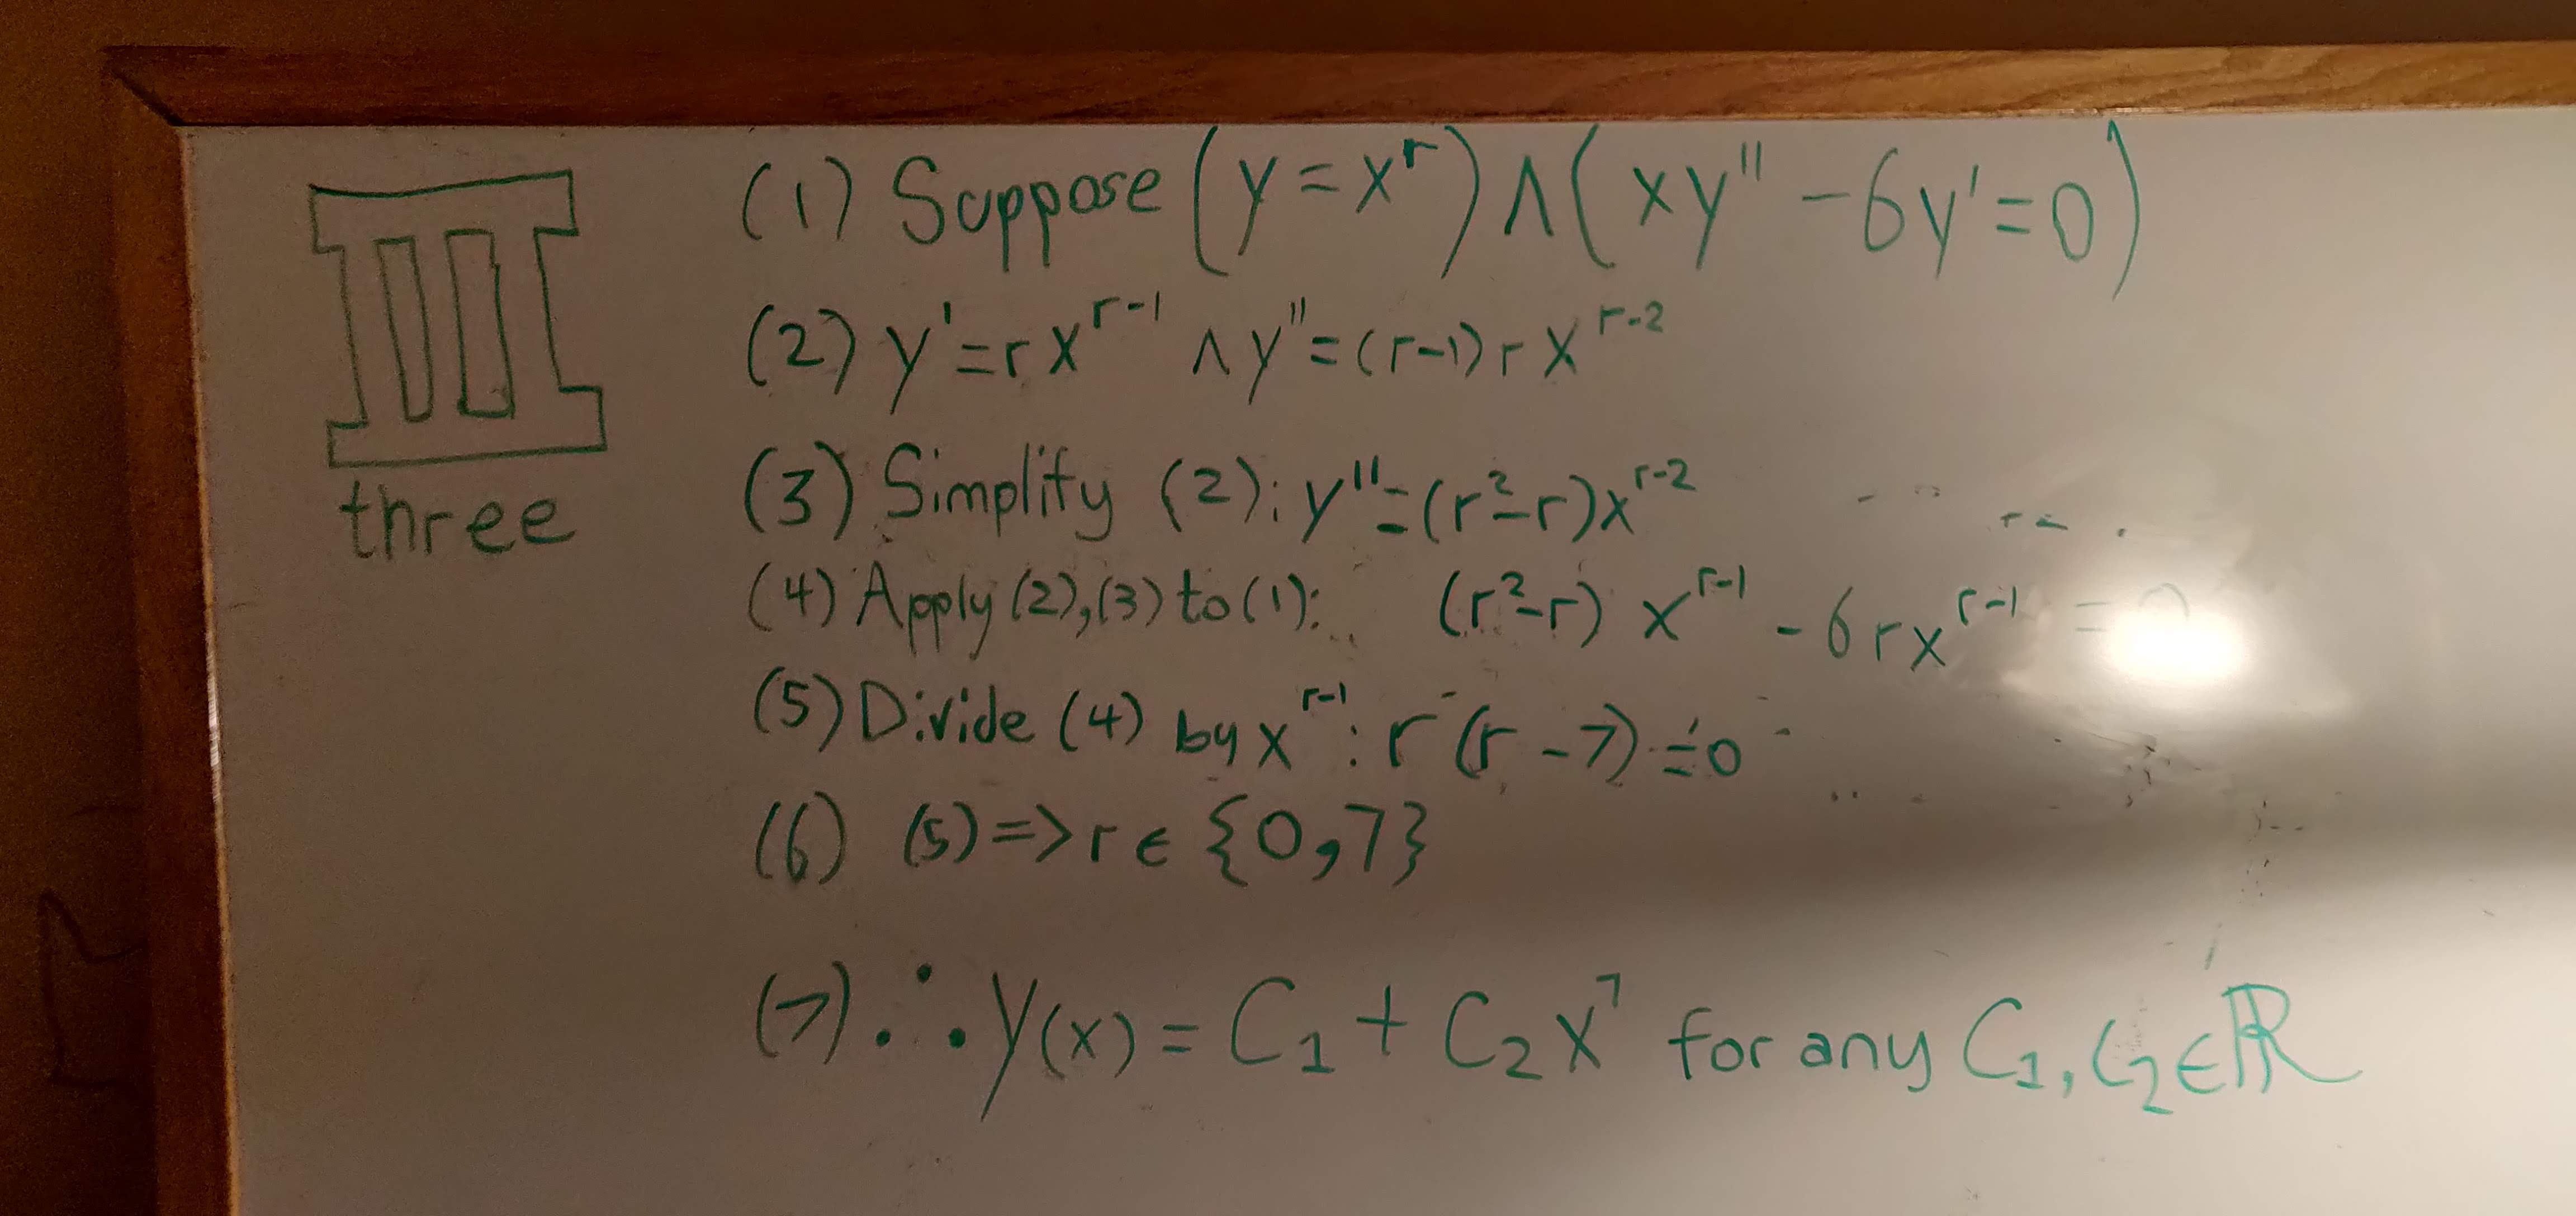 III
three
(1) Suppose (y = x^r) ∧ (xy'' - 6y' = 0)
(2) y' = r x^{r-1} ∧ y'' = (r-1) r x^{r-2}
(3) Simplify (2): y'' = (r² - r) x^{r-2}
(4) Apply (2), (3) to (1): (r² - r) x^{r-1} - 6 r x^{r-1} = 0
(5) Divide (4) by x^{r-1}: r (r - 7) = 0
(6) (5) => r ∈ {0, 7}
(7) ∴ y(x) = C₁ + C₂ x⁷ for any C₁, C₂ ∈ ℝ